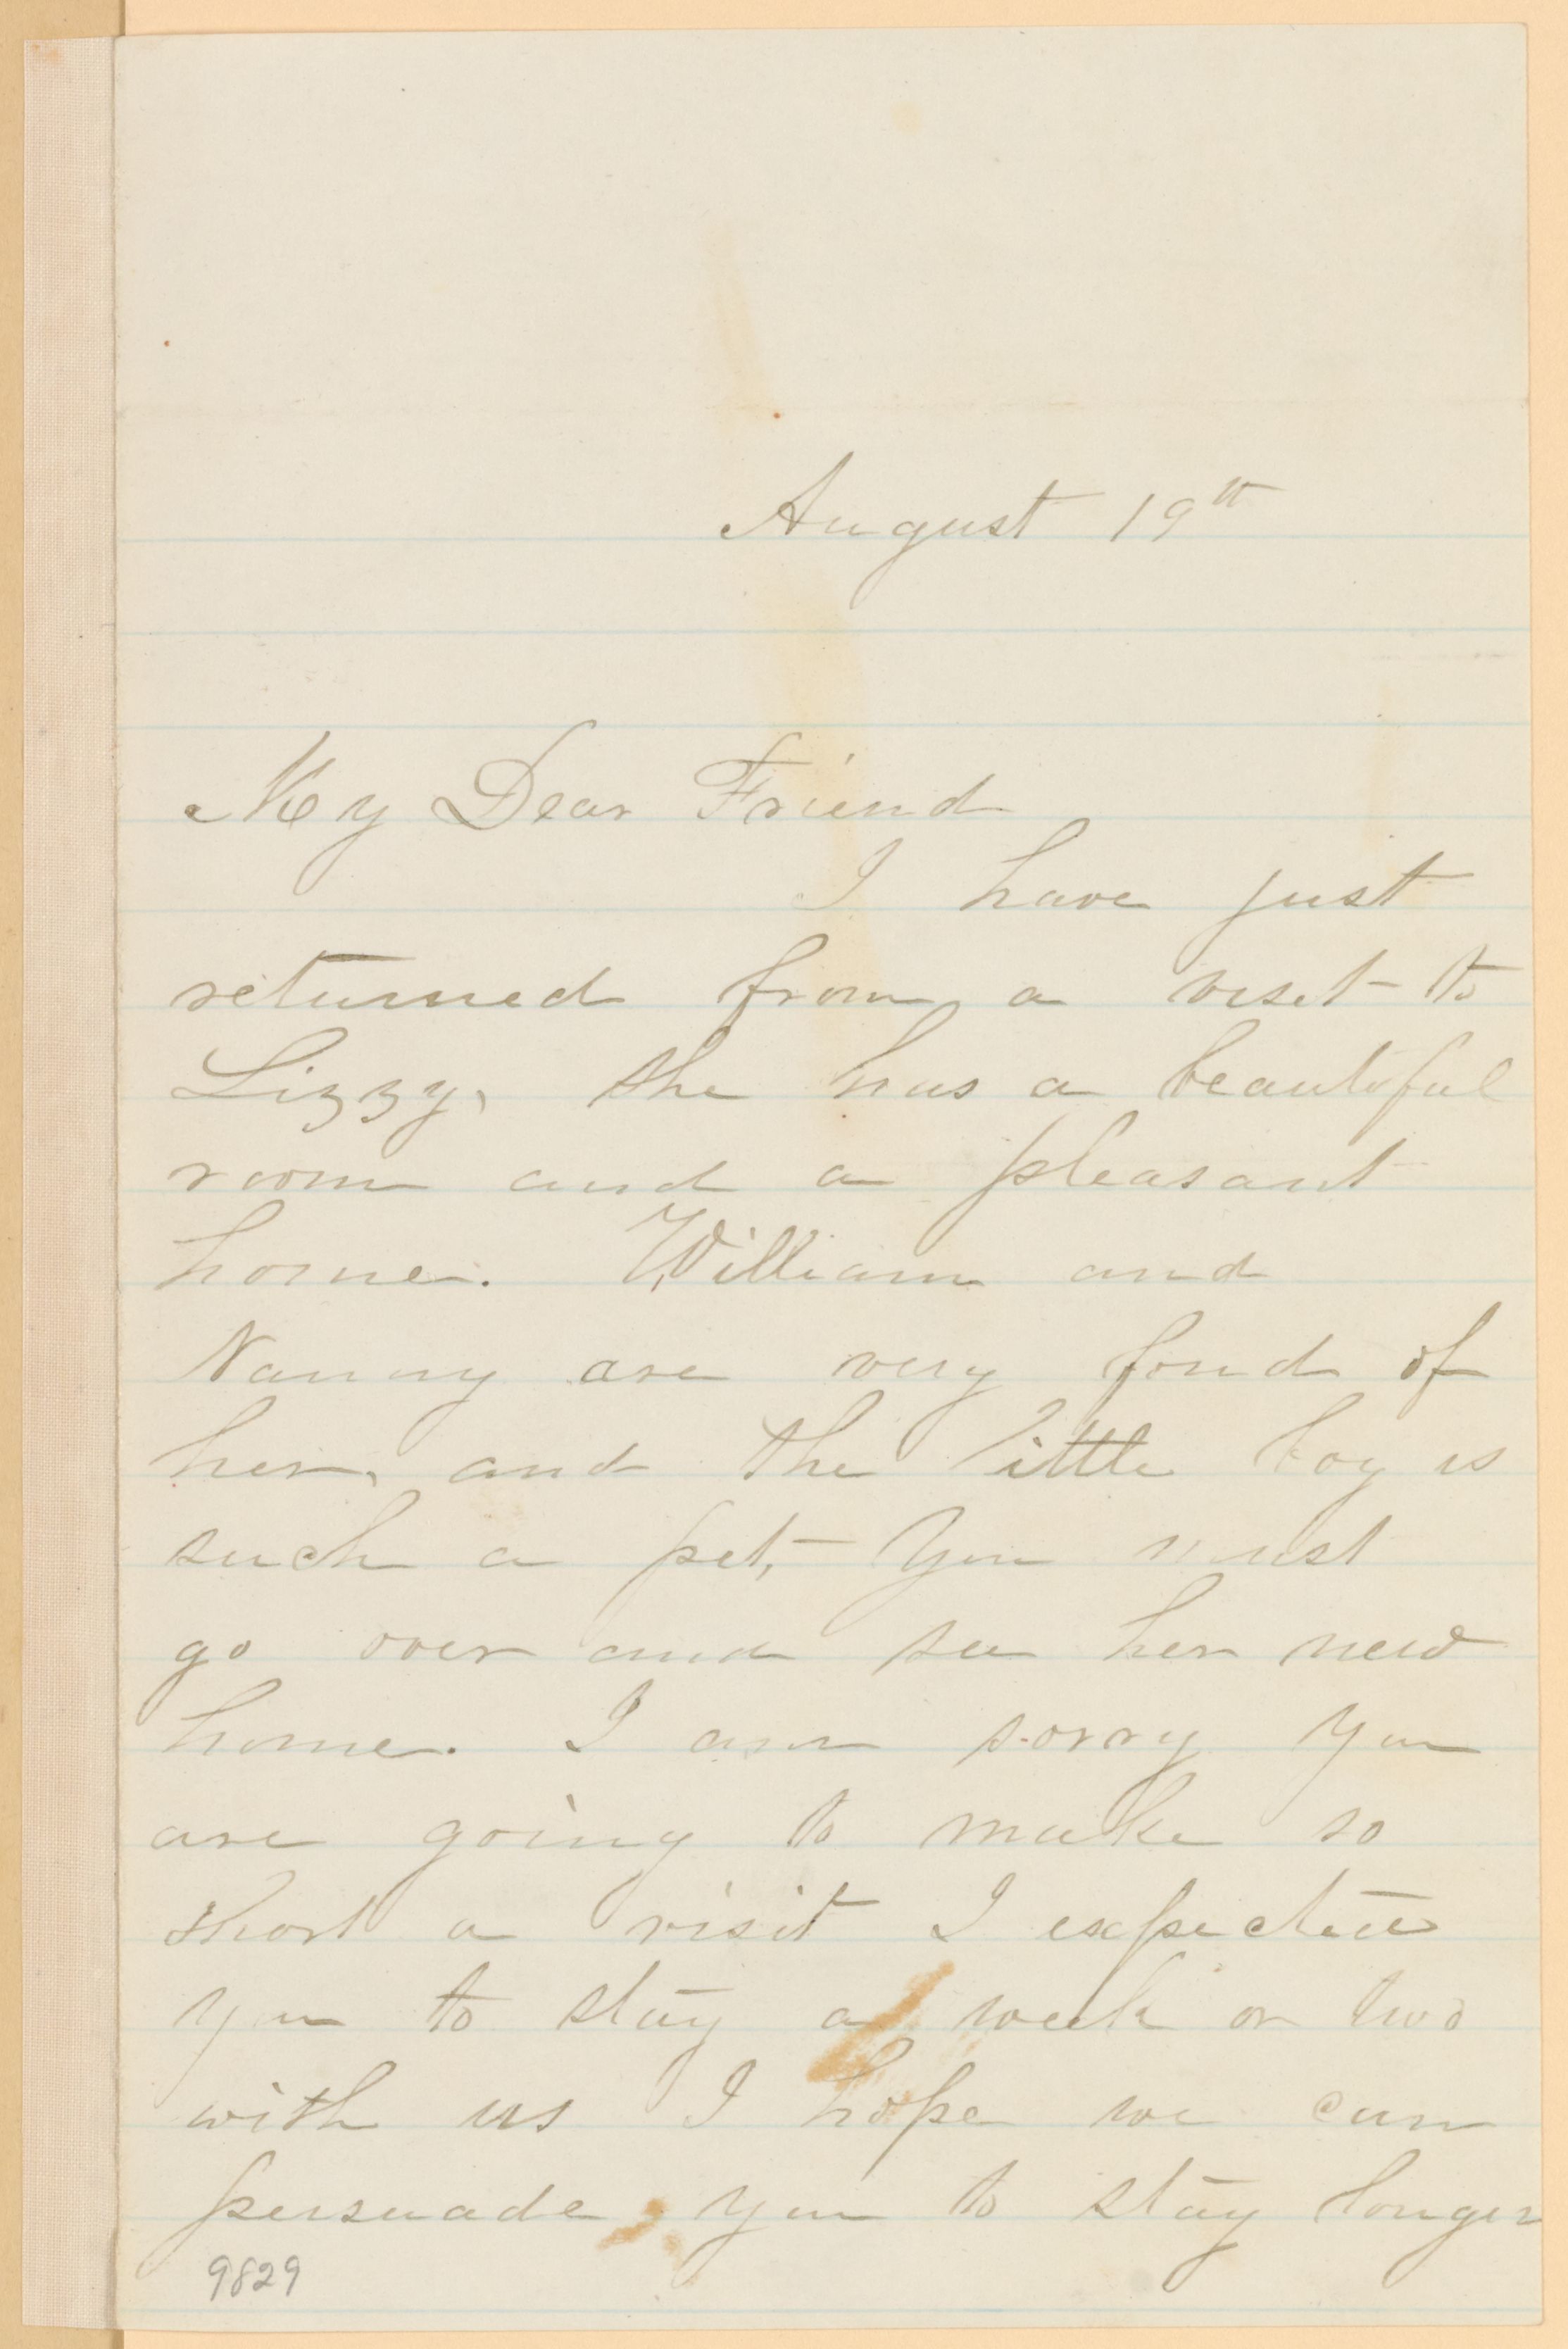 August 19th
My Dear Friend
I have just
returned from a visit to
Lizzy, she has a beautiful
room and a pleasant
home. William and
Nanny are very fond of
her, and the little boy is
such a pet, You must
go over and see her new
home. I am sorry you
are going to make so
short a visit I expected
you to stay a week or two
with us I hope we can
persuade you to stay longer
9829